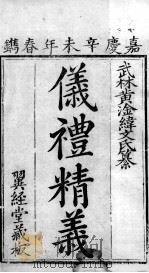 嘉慶辛未年春鐫
武林黃淦緯文氏纂
儀禮精義
翼經堂藏板